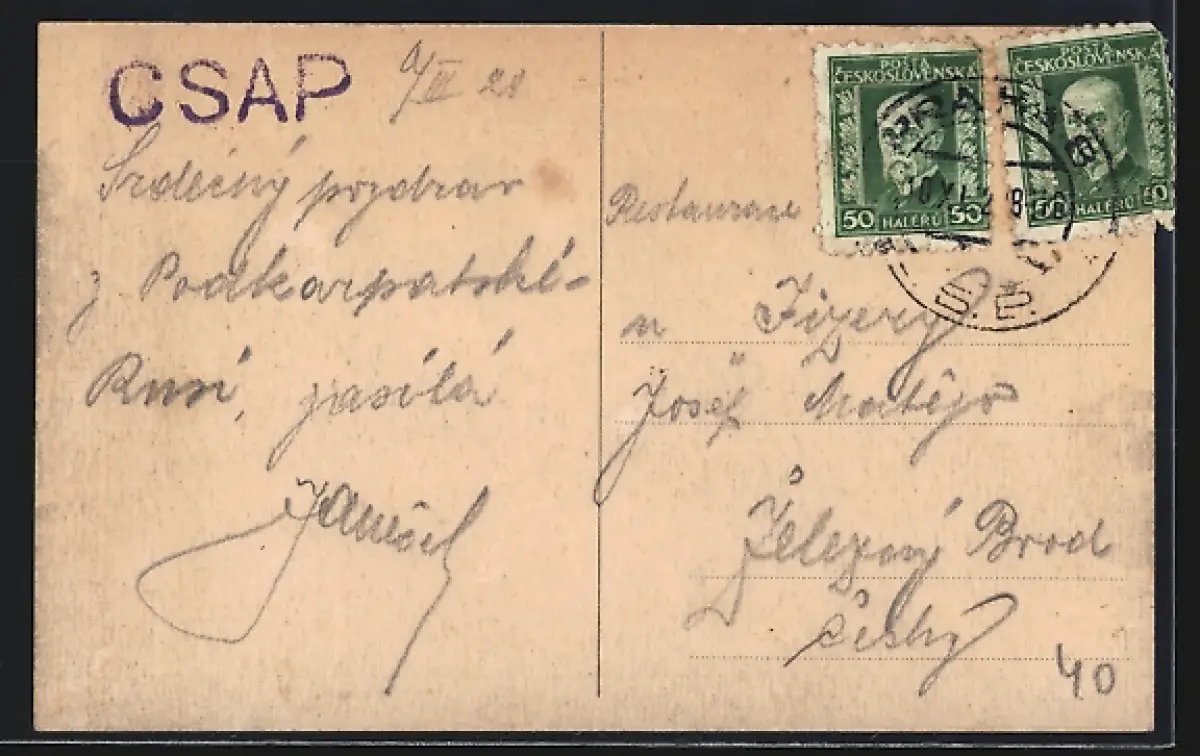 CSAP
Srdečný pozdrav
z Podkarpatské-
Rusi, zasílá
POŠTA
ČESKOSLOVENSKÁ
50 HALÉŘŮ 50
POŠTA
ČESKOSLOVENSKÁ
50 HALÉŘŮ 50
Restaurace
u Jizery
Josef Matějů
Železný Brod
Čechy
40